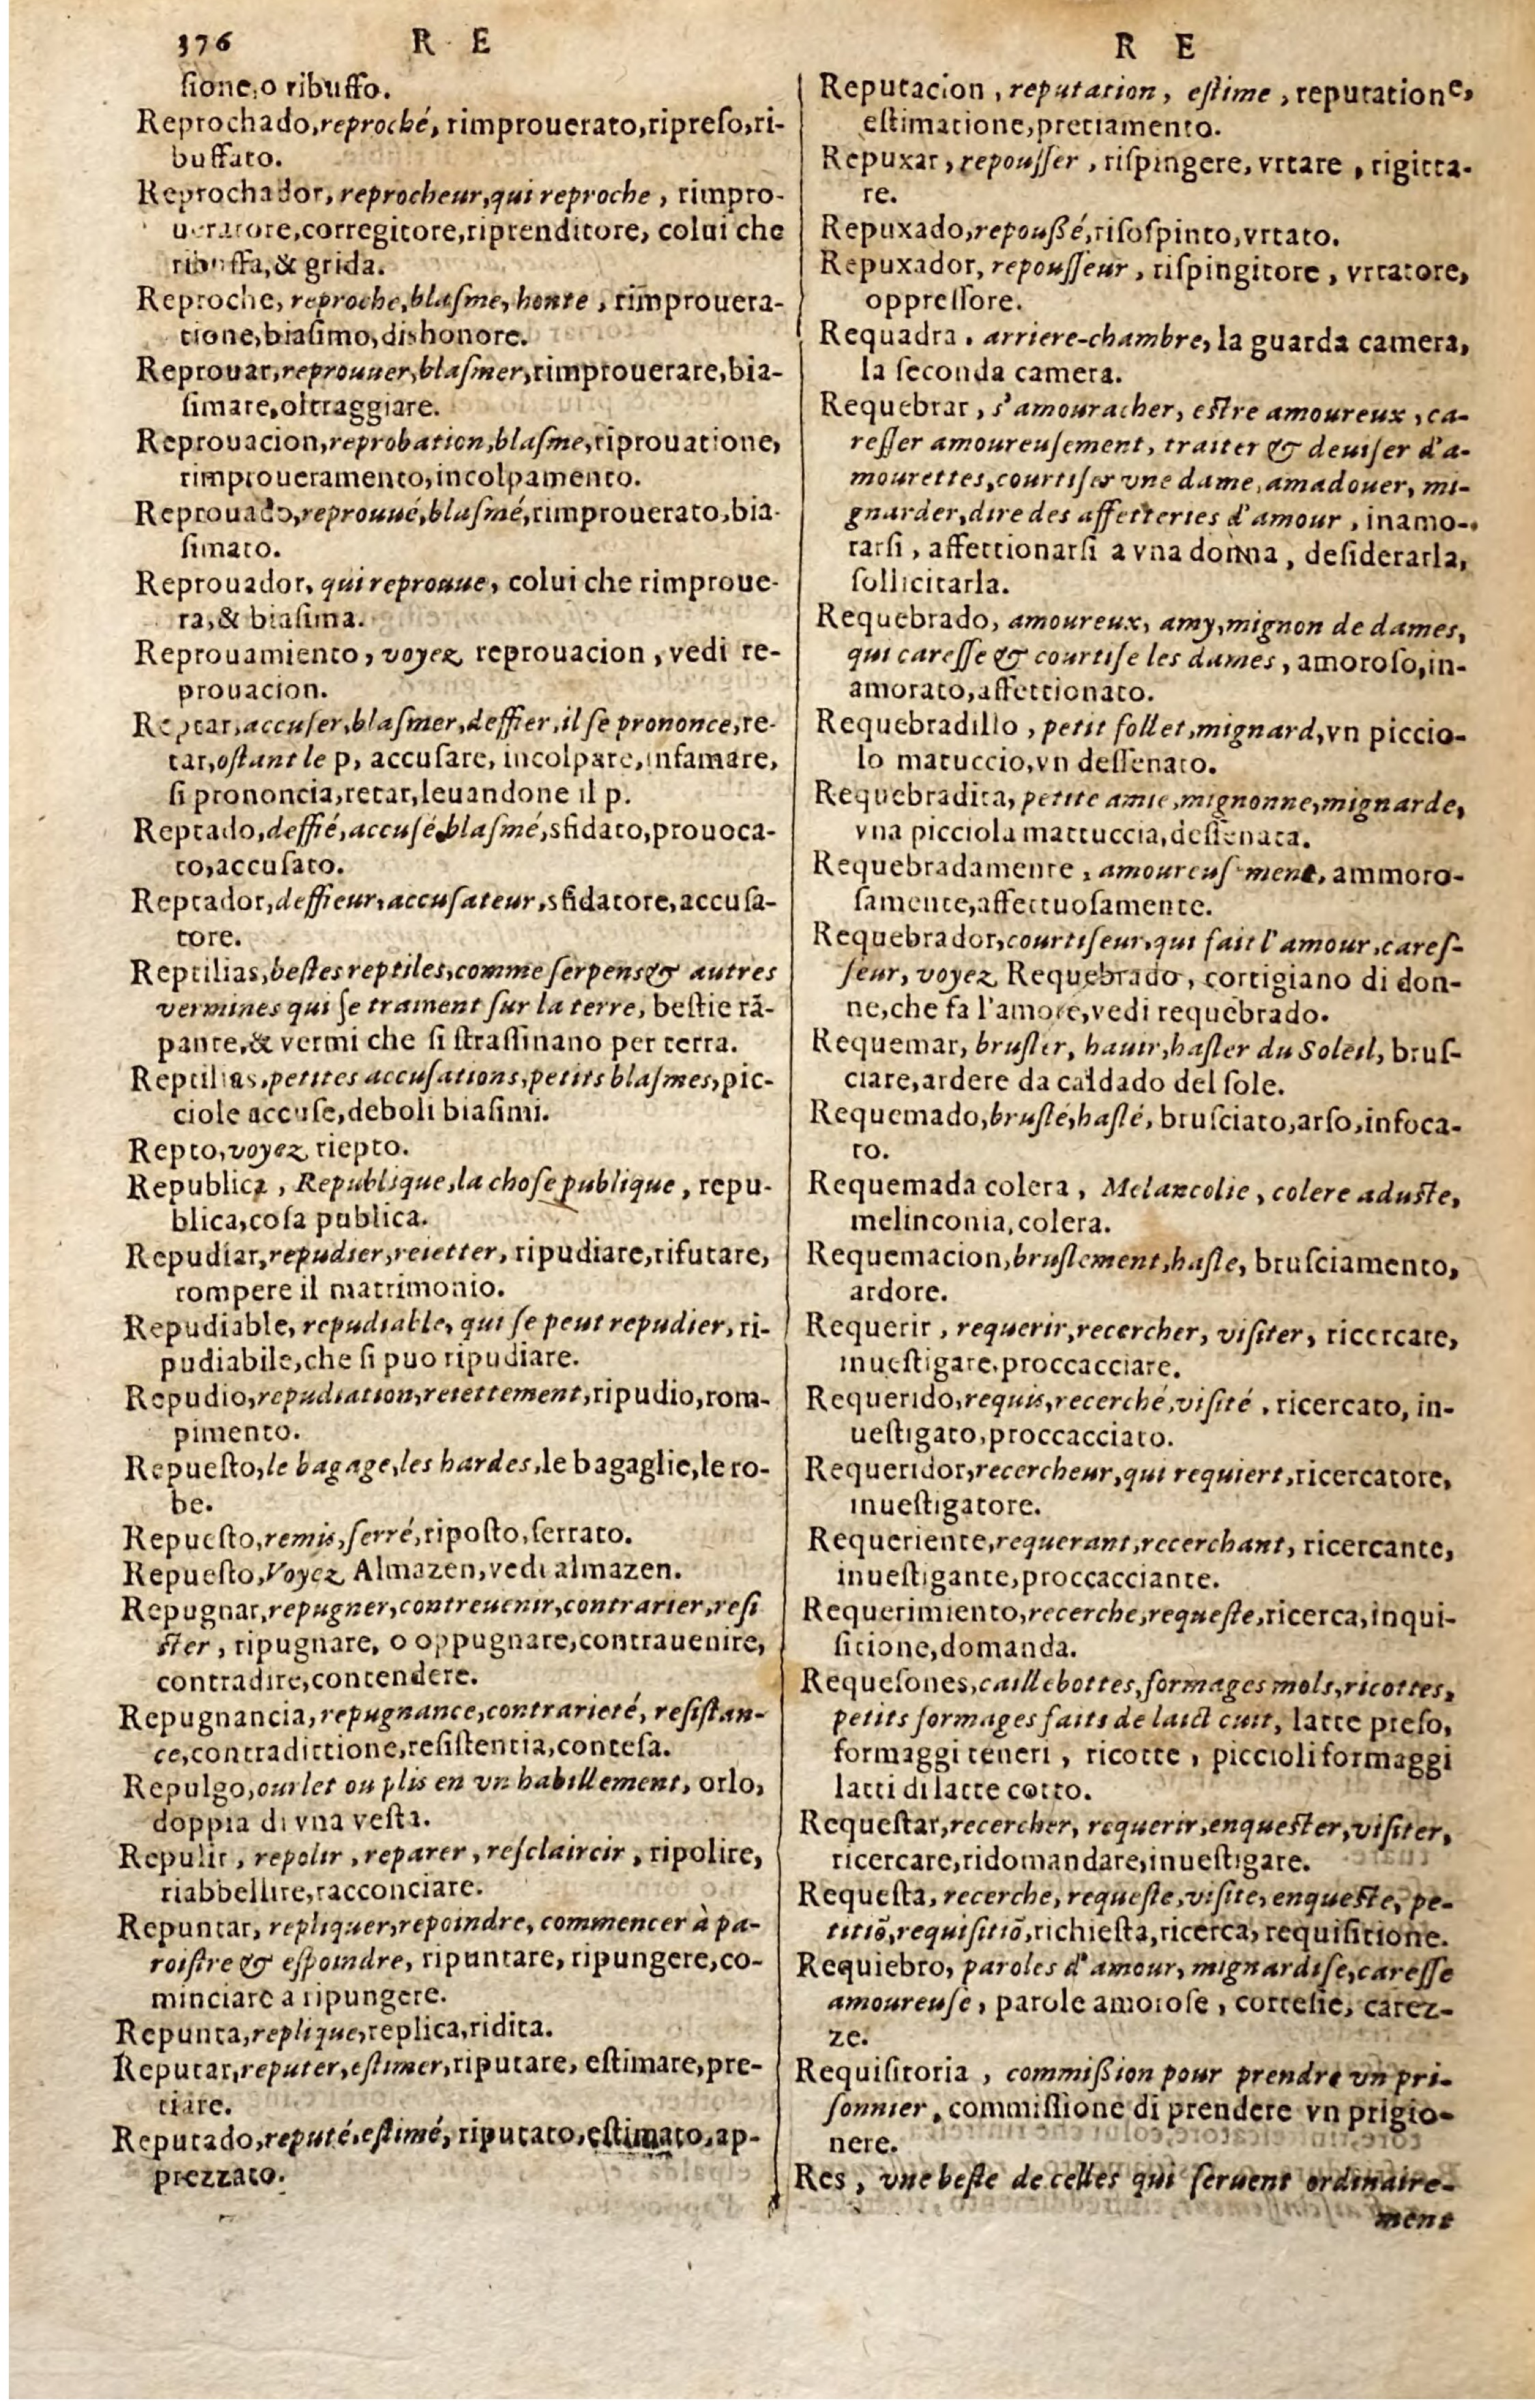 376 R E
sione,o ribuffo.
Reprochado,reproché, rimprouerato,ripreso,ri-
buffato.
Reprochador, reprocheur,qui reproche, rimpro-
ueratore,corregitore,riprenditore, colui che
ribuffa,& grida.
Reproche, reproche,blasme, honte, rimprouera-
tione,biasimo,dishonore.
Reprouar,reprouuer,blasmer,rimprouerare,bia-
simare,oltraggiare.
Reprouacion,reprobation,blasme,riprouatione,
rimproueramento,incolpamento.
Reprouado,reprouué,blasmé,rimprouerato,bia-
simato.
Reprouador, qui reprouue, colui che rimproue-
ra,& biasima.
Reprouamiento, voyez reprouacion, vedi re-
prouacion.
Reptar,accuser,blasmer,deffier,il se prononce,re-
tar,ostant le p, accusare, incolpare,infamare,
si prononcia,retar,leuandone il p.
Reptado,deffié,accusé,blasmé,sfidato,prouoca-
to,accusato.
Reptador,deffieur,accusateur,sfidatore,accusa-
tore.
Reptilias,bestes reptiles,comme serpens & autres
vermines qui se trament sur la terre, bestie rā-
pante,& vermi che si strassinano per terra.
Reptilias,petites accusations,petits blasmes,pic-
ciole accuse,deboli biasimi.
Repto,voyez riepto.
Republica, Republique,la chose publique, repu-
blica,cosa publica.
Repudiar,repudier,reietter, ripudiare,rifutare,
rompere il matrimonio.
Repudiable, repudiable, qui se peut repudier, ri-
pudiabile,che si puo ripudiare.
Repudio,repudiation,reiettement,ripudio,rom-
pimento.
Repuesto,le bagage,les hardes,le bagaglie,le ro-
be.
Repuesto,remis,serré,riposto,serrato.
Repuesto,Voyez Almazen,vedi almazen.
Repugnar,repugner,contreuenir,contrarier,resi
ster, ripugnare, o oppugnare,contrauenire,
contradire,contendere.
Repugnancia,repugnance,contrarieté, resistan-
ce,contradittione,resistentia,contesa.
Repulgo,ourlet ou plis en vn habillement, orlo,
doppia di vna vesta.
Repulir, repolir, reparer, resclaircir, ripolire,
riabbellire,racconciare.
Repuntar, repliquer,repoindre, commencer à pa-
roistre & espoindre, ripuntare, ripungere,co-
minciare a ripungere.
Repunta,replique,replica,ridita.
Reputar,reputer,estimer,riputare, estimare,pre-
tiare.
Reputado,reputé,estimé, riputato,estimato,ap-
prezzato.
R E
Reputacion, reputation, estime, reputatione,
estimatione,pretiamento.
Repuxar, repousser, rispingere, vrtare, rigitta-
re.
Repuxado,repoußé,risospinto,vrtato.
Repuxador, repousseur, rispingitore, vrtatore,
oppressore.
Requadra, arriere-chambre, la guarda camera,
la seconda camera.
Requebrar, s'amouracher, estre amoureux, ca-
resser amoureusement, traiter & deuiser d'a-
mourettes,courtiser vne dame,amadouer, mi-
gnarder,dire des affetteries d'amour, inamo-
rarsi, affettionarsi a vna donna, desiderarla,
sollicitarla.
Requebrado, amoureux, amy,mignon de dames,
qui caresse & courtise les dames, amoroso,in-
amorato,affettionato.
Requebradillo, petit follet,mignard,vn piccio-
lo matuccio,vn dessenato.
Requebradita, petite amie,mignonne,mignarde,
vna picciola mattuccia,dessenata.
Requebradamente, amoureusement, ammoro-
samente,affettuosamente.
Requebrador,courtiseur,qui fait l'amour,cares-
seur, voyez Requebrado, cortigiano di don-
ne,che fa l'amore,vedi requebrado.
Requemar, brusler, hauir,hasler du Soleil, brus-
ciare,ardere da caldado del sole.
Requemado,bruslé,haslé, brusciato,arso,infoca-
to.
Requemada colera, Melancolie, colere aduste,
melinconia,colera.
Requemacion,bruslement,hasle, brusciamento,
ardore.
Requerir, requerir,recercher, visiter, ricercare,
inuestigare,proccacciare.
Requerido,requis,recerché,visité, ricercato, in-
uestigato,proccacciato.
Requeridor,recercheur,qui requiert,ricercatore,
inuestigatore.
Requeriente,requerant,recerchant, ricercante,
inuestigante,proccacciante.
Requerimiento,recerche,requeste,ricerca,inqui-
sitione,domanda.
Requesones,caillebottes,formages mols,ricottes,
petits formages faits de laict cuit, latte preso,
formaggi teneri, ricotte, piccioli formaggi
latti di latte cotto.
Requestar,recercher, requerir,enquester,visiter,
ricercare,ridomandare,inuestigare.
Requesta, recerche, requeste,visite, enqueste, pe-
titiō,requisitiō,richiesta,ricerca, requisitione.
Requiebro, paroles d'amour, mignardise,caresse
amoureuse, parole amorose, cortesie, carez-
ze.
Requisitoria, commißion pour prendre vn pri-
sonnier, commissione di prendere vn prigio-
nere.
Res, vne beste de celles qui seruent ordinaire-
ment